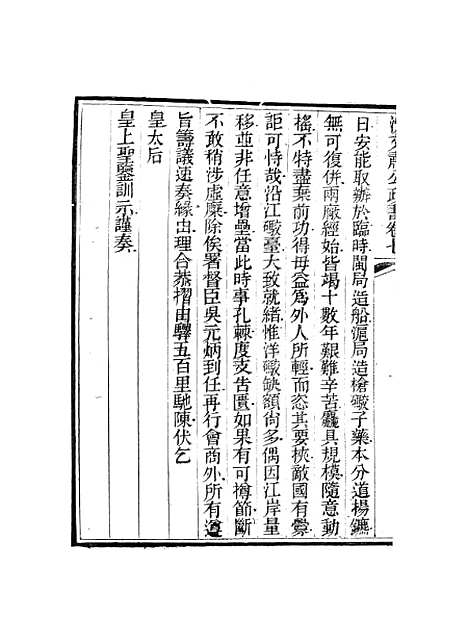 沈文肅公政書卷七
日安能取辦於臨時閩局造船滬局造槍礮子藥本分道揚鑣
無可復併兩廠經始皆竭十數年艱難辛苦麤具規模隨意動
搖不特盡棄前功得毋益爲外人所輕而恣其要挾敵國有釁
詎可恃哉沿江礮臺大致就緒惟洋礮缺額尙多偶因江岸量
移並非任意增壘當此時事孔棘度支告匱如果有可撙節斷
不敢稍涉虛糜除俟署督臣吳元炳到任再行會商外所有遵
旨籌議速奏緣由理合恭摺由驛五百里馳陳伏乞
皇太后
皇上聖鑒訓示謹奏